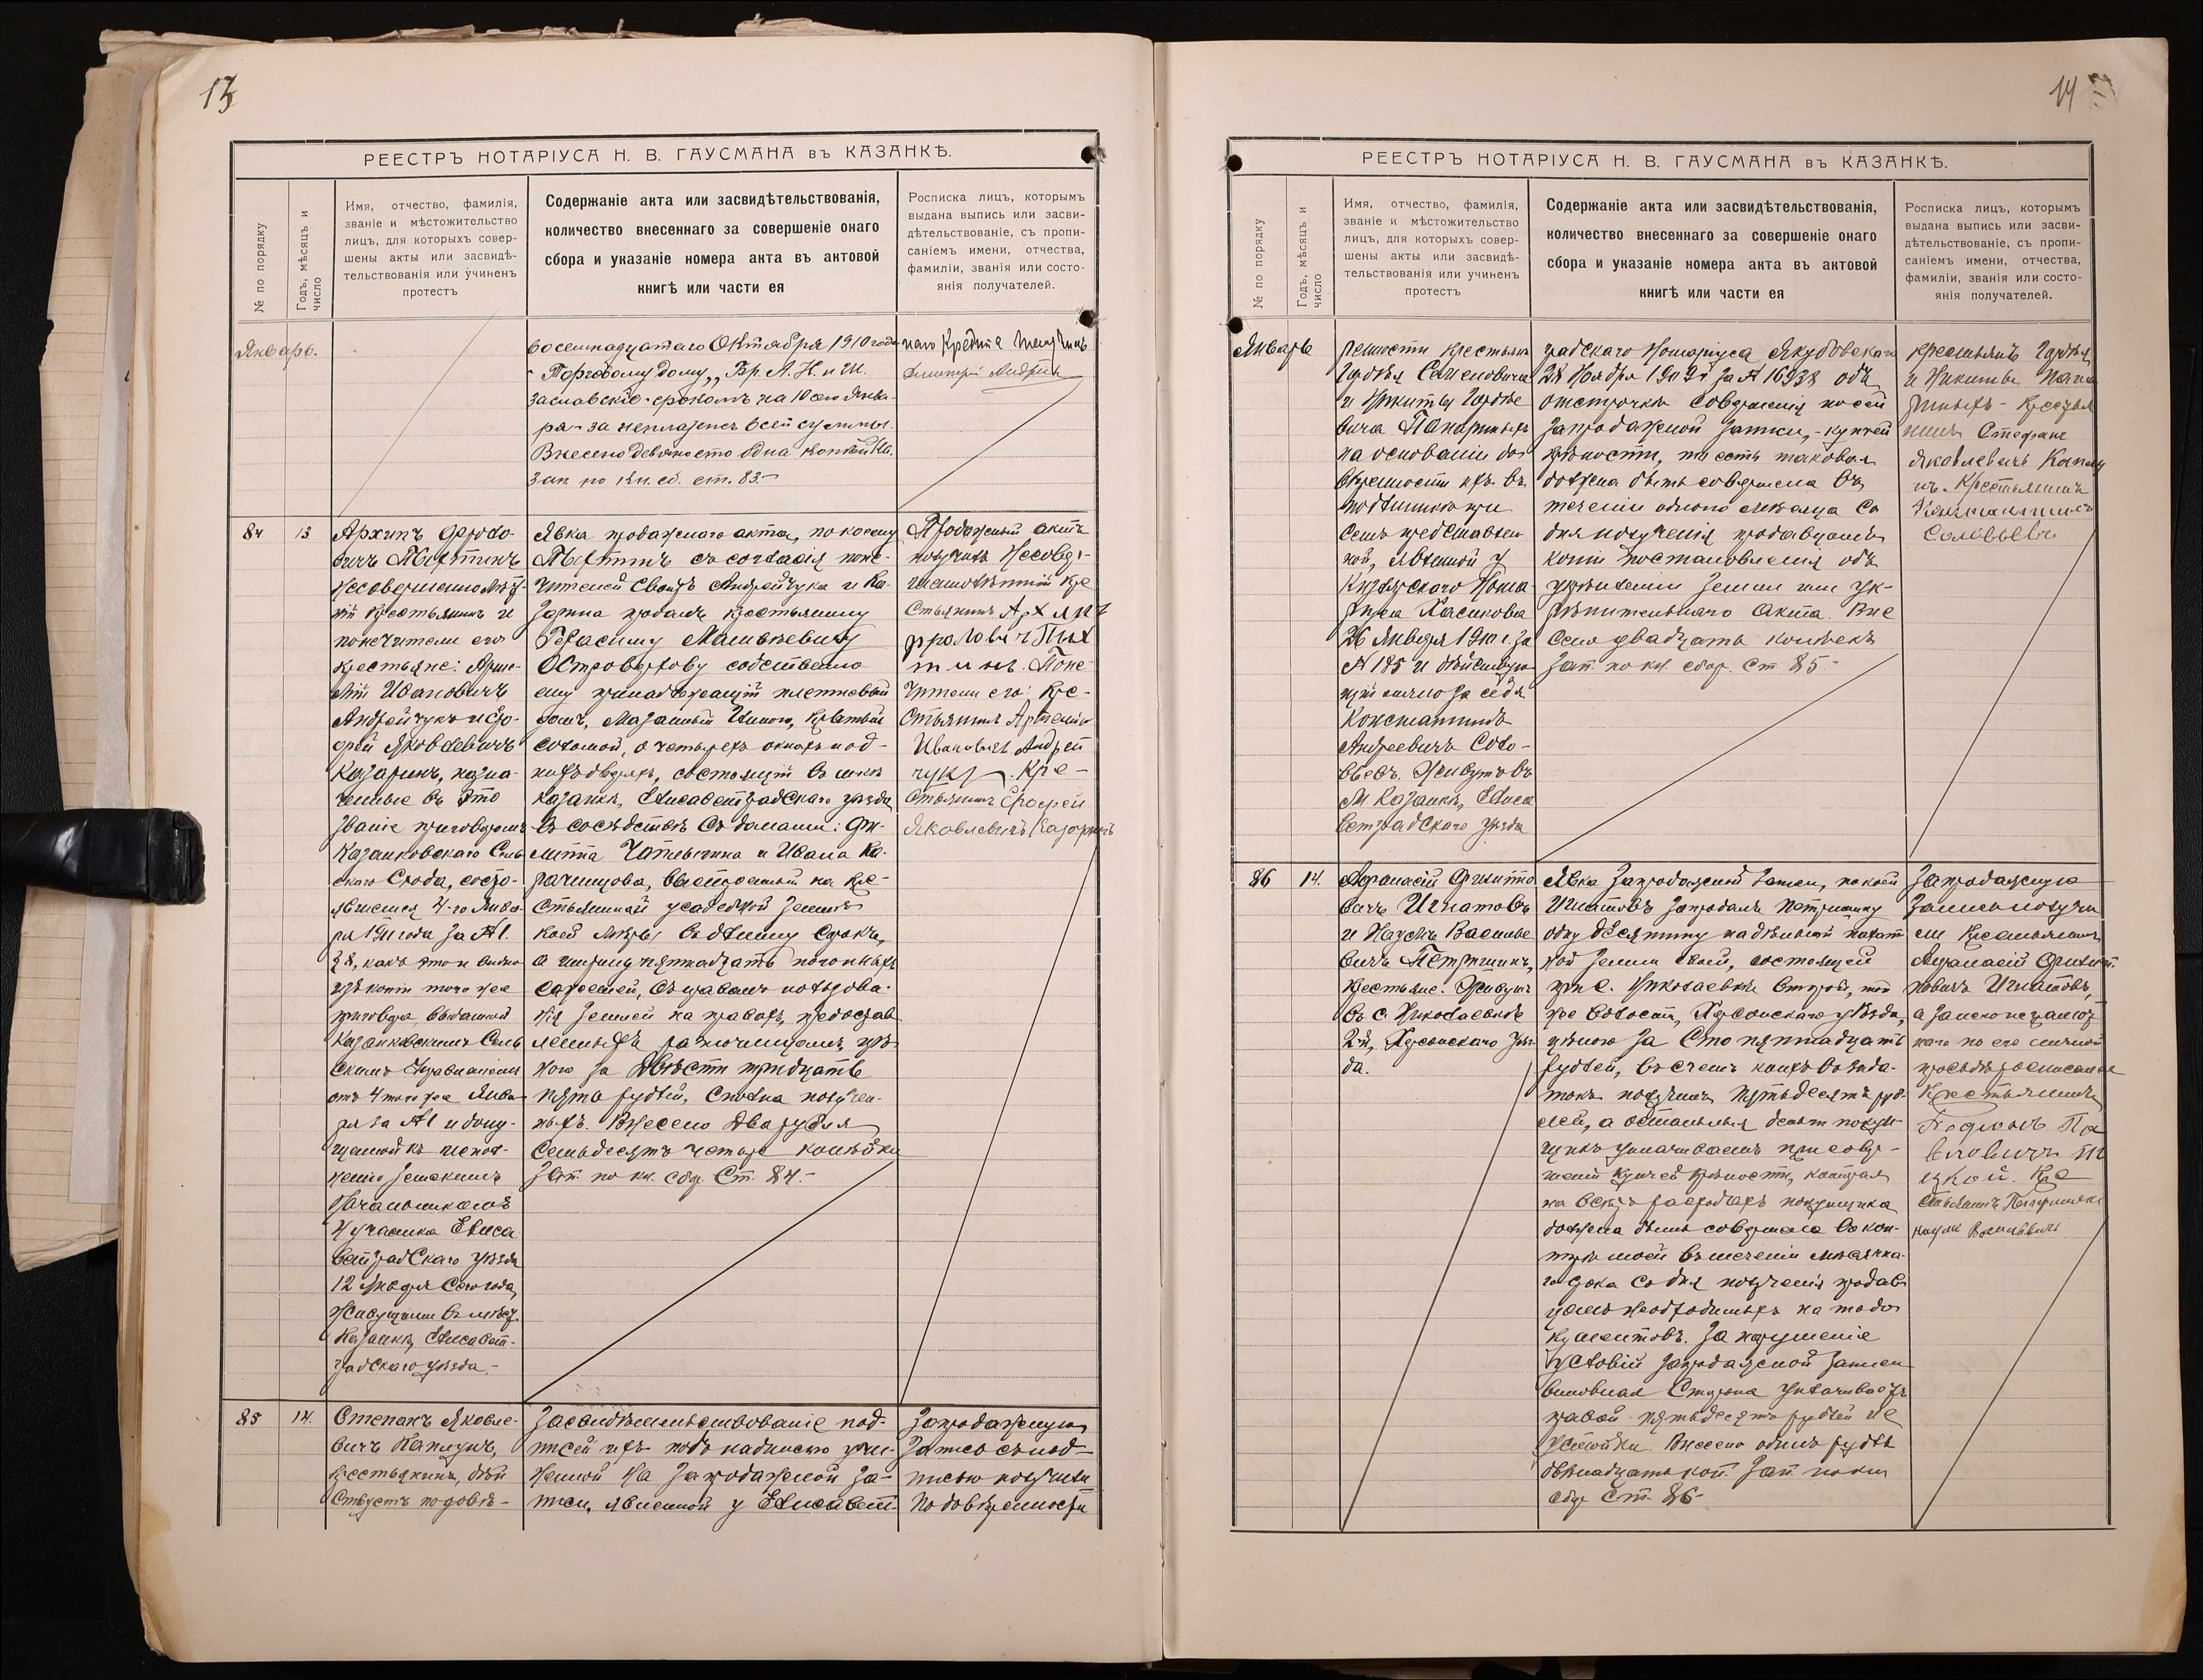 13
РЕЕСТРЪ НОТАРІУСА Н. В. ГАУСМАНА въ КАЗАНКѢ.
№ по порядку
Годъ, мѣсяцъ и
число
Имя, отчество, фамилія,
званіе и мѣстожительство
лицъ, для которыхъ совер-
шены акты или засвидѣ-
тельствованія или учиненъ
протестъ
Содержаніе акта или засвидѣтельствованія,
количество внесеннаго за совершеніе онаго
сбора и указаніе номера акта въ актовой
книгѣ или части ея
Росписка лицъ, которымъ
выдана выпись или засви-
дѣтельствованіе, съ пропи-
саніемъ имени, отчества,
фамиліи, званія или состо-
янія получателей.
Январь.
восемнадцатаго Октября 1910 года
Торговому Дому „Бр. А. Н. и М.
Заславскіе" срокомъ на 10 сего Янва-
ря - за неплатежъ всей суммы.
Внесено девяносто одна копѣйка.
Зап. по кн. сб. ст. 83.-
наго Кредита
Дмитрій
84
13
Архипъ Фроло-
вичъ Пыхтинъ
Несовершеннолѣт-
ній крестьянинъ и
попечители его
крестьяне: Арте-
мій Ивановичъ
Андрейчукъ и Еро-
фей Яковлевичъ
Казаринъ, назна-
ченные въ это
званіе приговоромъ
Казанковскаго Сель-
скаго Схода, состо-
явшемся 4-го Янва-
ря 1911 года за № 1.
§ 8, какъ это и видно
изъ копіи того же
приговора, выданной
Казанковскимъ Сель
скимъ Управленіемъ
отъ 4 того же Янва-
ря за № 1 и допу-
щенной къ испол-
ненію Земскимъ
Начальникомъ
4 участка Елиса
ветградскаго уѣзда
12 Января сего года,
Живущіе въ мѣст.
Казанкѣ, Елисавет-
градскаго уѣзда.-
Явка продажнаго акта, по коему
Пыхтинъ съ согласія попе-
чителей своихъ Андрейчука и Ка-
зарина продалъ крестьянину
Герасиму Матвѣевичу
Островерхову собственно
ему принадлежащій плетневый
домъ, мазанный глиною, крытый
соломой, о четырехъ окнахъ и од-
нихъ дверяхъ, состоящій въ мѣст.
Казанкѣ, Елисаветградскаго уѣзда
въ сосѣдствѣ съ домами: Фи-
липпа Чаплыгина и Ивана Ка-
рачинцова, выстроенный на кре-
стьянской усадебной землѣ
коей мѣры въ длину сорокъ,
а ширину пятнадцать погонныхъ
саженей, съ правомъ пользова-
нія землей на правахъ, предостав
ленныхъ разночинцамъ, цѣ-
ною за Двѣсти тридцать
пять рублей, сполна получен-
ныхъ. Внесено два рубля
семьдесятъ четыре копѣйки
Зап. по кн. сбор. Ст. 84.-
Продажный актъ
получилъ Несовер-
шеннолѣтній кре
стьянинъ Архипъ
Фроловичъ Пых
тинъ. Попе-
чители его: Кре-
стьянинъ Артемій
Ивановичъ Андрей
чукъ. Кре-
стьянинъ Ерофей
Яковлевичъ Казаринъ
85
14.
Степанъ Яковле-
вичъ Каплунъ,
крестьянинъ, дѣй
ствуетъ по довѣ-
Засвидѣтельствованіе под-
писей ихъ подъ надписью учи-
ненной на запродажной за-
писи, явленной у Елисавет-
Запродажную
запись съ над-
писью получили
по довѣренности
14
РЕЕСТРЪ НОТАРІУСА Н. В. ГАУСМАНА въ КАЗАНКѢ.
№ по порядку
Годъ, мѣсяцъ и
число
Имя, отчество, фамилія,
званіе и мѣстожительство
лицъ, для которыхъ совер-
шены акты или засвидѣ-
тельствованія или учиненъ
протестъ
Содержаніе акта или засвидѣтельствованія,
количество внесеннаго за совершеніе онаго
сбора и указаніе номера акта въ актовой
книгѣ или части ея
Росписка лицъ, которымъ
выдана выпись или засви-
дѣтельствованіе, съ пропи-
саніемъ имени, отчества,
фамиліи, званія или состо-
янія получателей.
Январь
ренности крестьянъ
Гордѣя Семеновича
и Никиты Гордѣе
вича
на основаніи до-
вѣренности ихъ въ
подлинникѣ при
семъ представлен
ной, явленной у
Нота-
ріуса Касинова
26 Января 1910 г. за
№ 185 и дѣйствую-
щій лично за себя
Константинъ
Андреевичъ Соло-
вьевъ. Живутъ въ
М. Казанкѣ, Елиса
ветградскаго уѣзда
градскаго Нотаріуса Якубовскаго
28 Ноября 1909 г. за № 16938 объ
отсрочкѣ совершенія по сей
запродажной записи, - купчей
крѣпости, то есть таковая
должна быть совершена въ
теченіи одного мѣсяца со
дня полученія продавцомъ
копіи постановленія объ
укрѣпленіи земли или ук-
рѣпительнаго акта. Вне
сено двадцать копѣекъ
Зап. по кн. сбор. Ст. 85.-
крестьянъ Гордѣя
и Никиты
Крестья
нинъ Стефанъ
Яковлевичъ Каплу
нъ. Крестьянинъ
Константинъ
Соловьевъ
86
14.
Афанасій Филиппо
вичъ Игнатовъ
и Наумъ Василье
вичъ Петришинъ,
крестьяне. Живутъ
въ с. Николаевкѣ
2й, Херсонскаго уѣз-
да.
Явка запродажной записи, по коей
Игнатовъ запродалъ Петришину
одну десятину надѣльной пахат
ной земли своей, состоящей
при с. Николаевкѣ второй, той
же волости, Херсонскаго уѣзда,
цѣною за Сто пятнадцать
рублей, въ счетъ коихъ въ зада-
токъ получилъ пятьдесятъ руб-
лей, а остальныя деньги покуп-
щикъ уплачиваетъ при совер-
шеніи купчей крѣпости, которая
на всѣхъ расходахъ покупщика
должна быть совершена въ кон-
торѣ моей въ теченіи мѣсячна-
го срока со дня полученія продав-
цомъ необходимыхъ на то до-
кументовъ. За нарушеніе
условій запродажной записи
виновная сторона уплачиваетъ
правой пятьдесятъ рублей не
устойки. Внесено одинъ рубль
двѣнадцать коп. Зап. по кн.
сбор. Ст. 86-
Запродажную
запись получи
ли Крестьянинъ
Афанасій Филип-
повичъ Игнатовъ,
а за него неграмот
наго по его личной
просьбѣ росписался
Крестьянинъ
Па
вловичъ
Кре
стьянинъ Петришинъ
Наумъ Васильевичъ